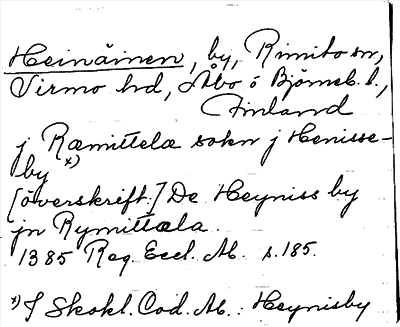 Heinäinen, by, Rimito sn,
Virmo hd, Åbo o Björneb. l.,
Finland
j Ræmittelæ sokn j Henisse-
by x)
[överskrift:] De Heyniss by
jn Rymittæla.
1385 Reg. Eccl. Ab. s. 185.
x) I Skokl. Cod. Ab.: Heynisby